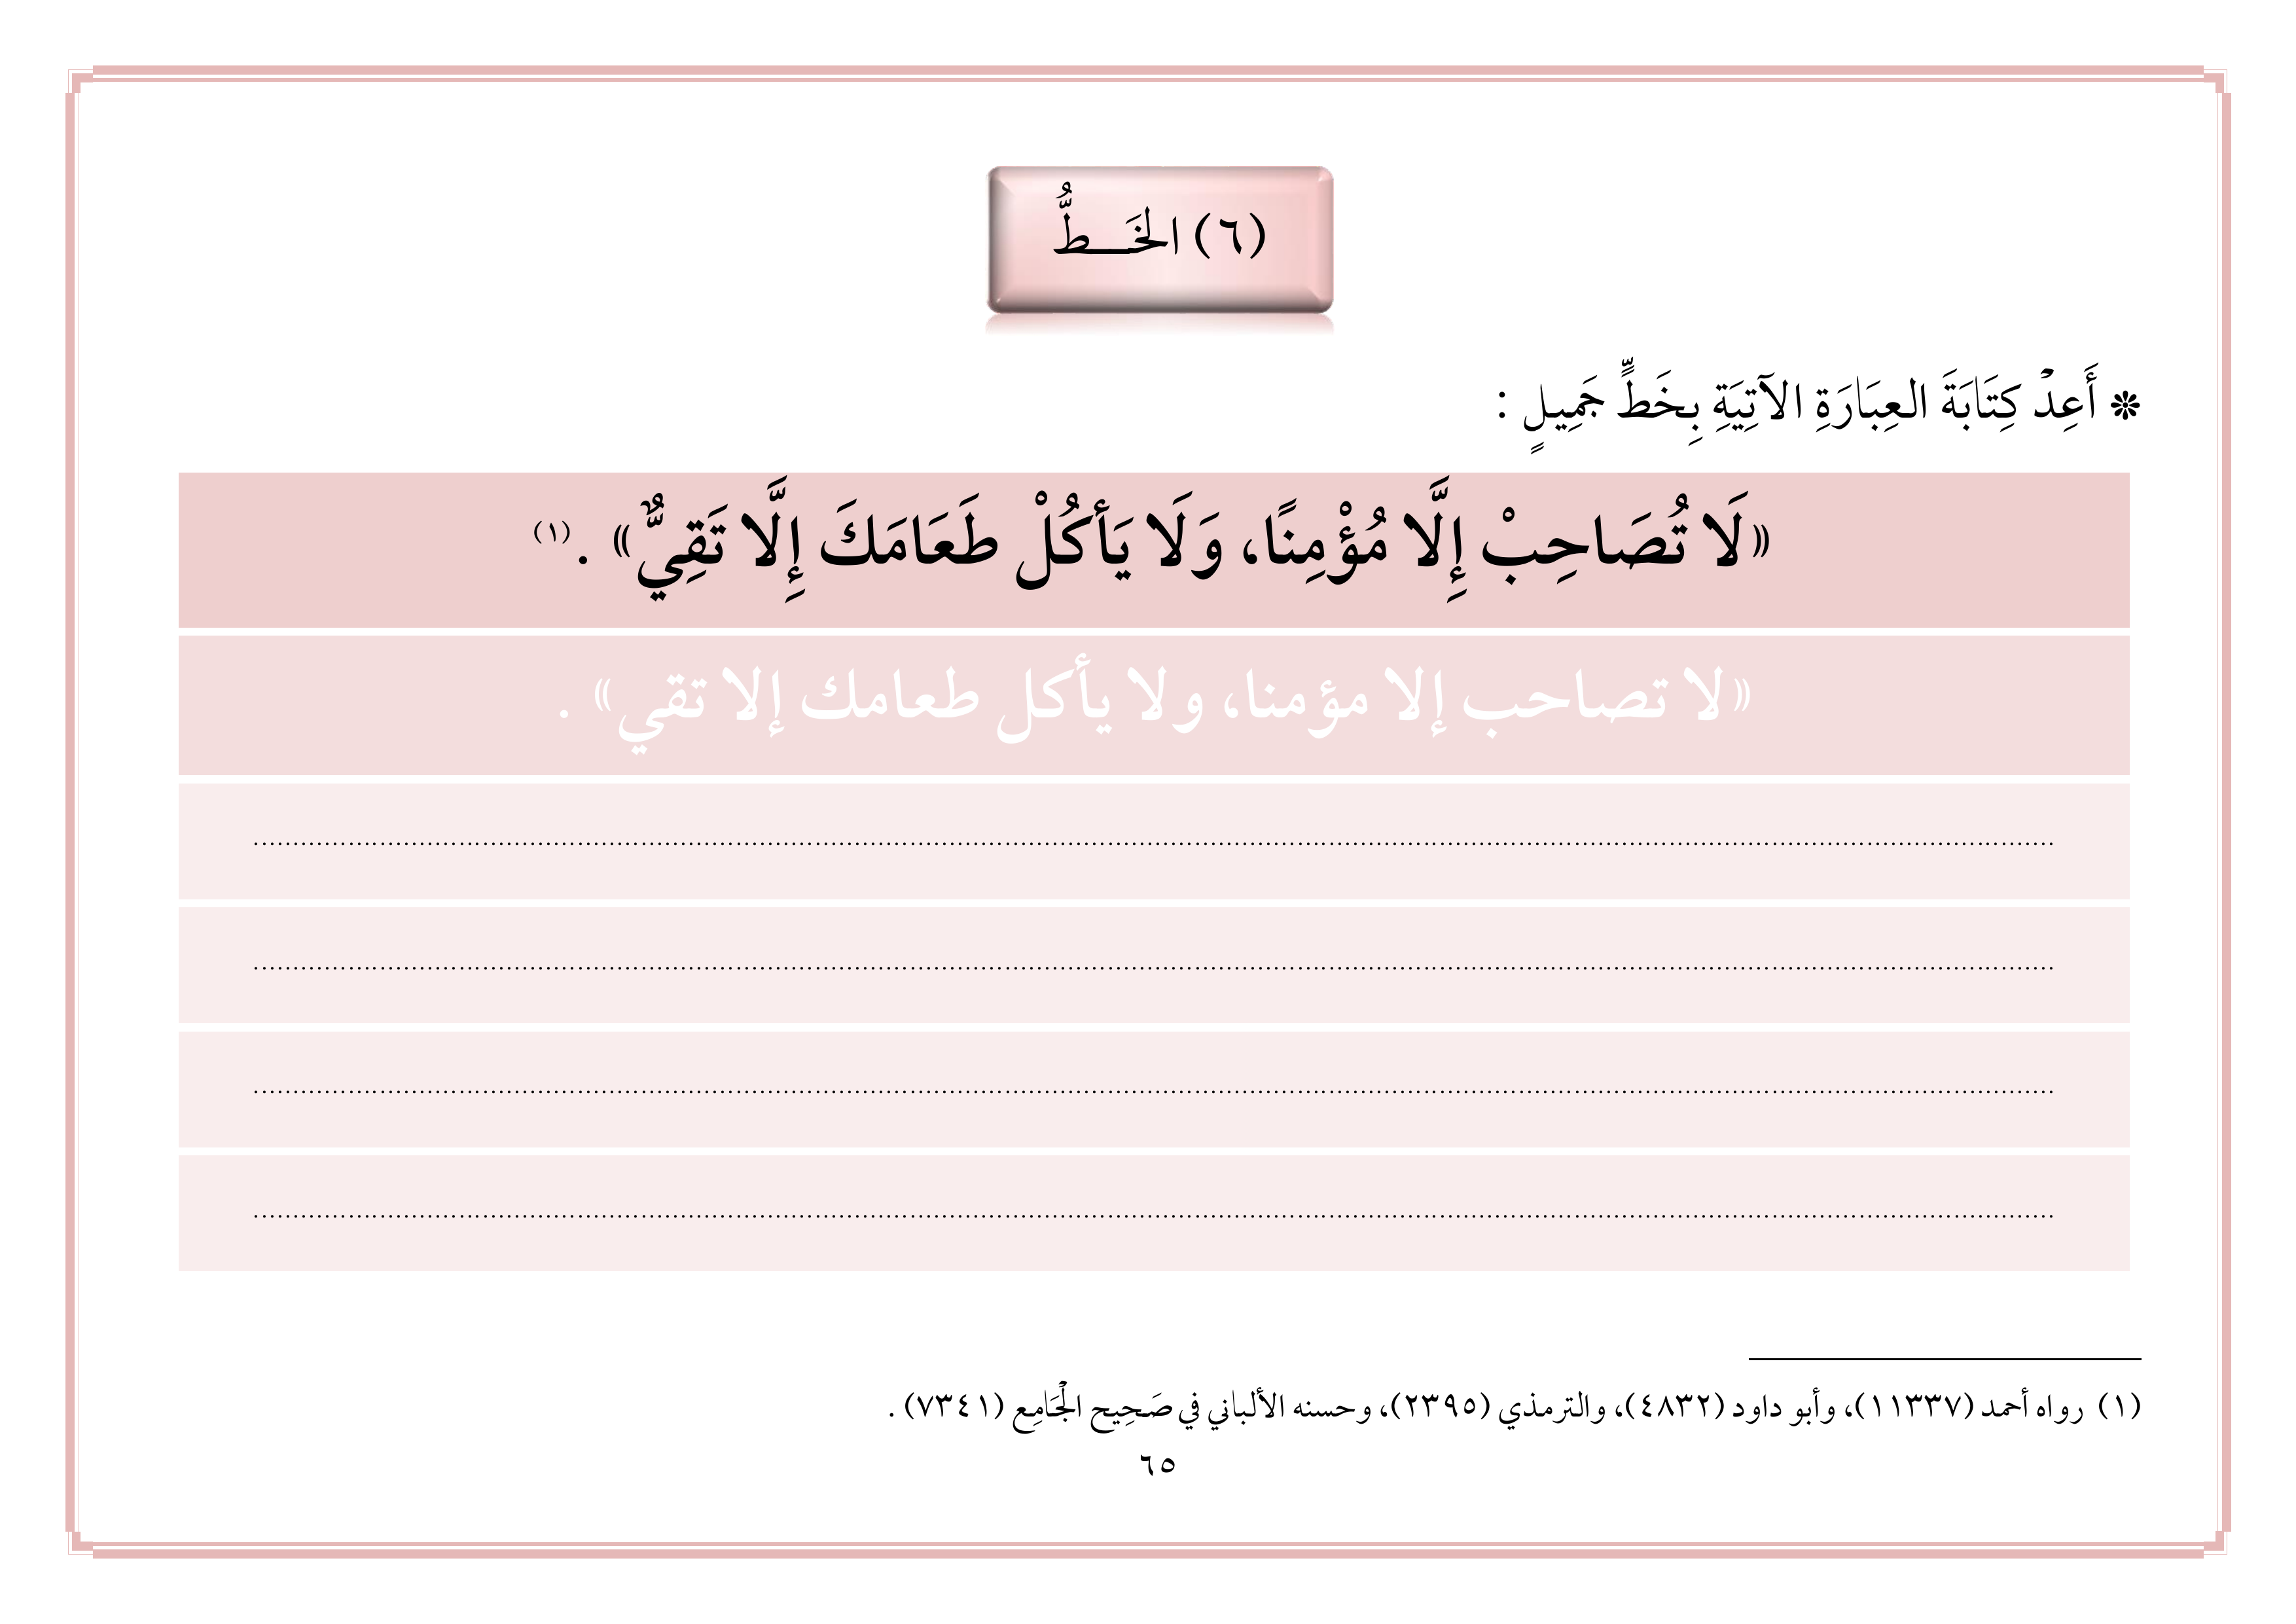 (٦) الخَـــطُّ
❊ أَعِدْ كِتَابَةَ العِبَارَةِ الآتِيَةِ بِخَطٍّ جَمِيلٍ :
«لَا تُصَاحِبْ إِلَّا مُؤْمِنًا، وَلَا يَأْكُلْ طَعَامَكَ إِلَّا تَقِيٌّ» . (١)
«لا تصاحب إلا مؤمنا، ولا يأكل طعامك إلا تقي» .
(١) رواه أحمد (١١٣٣٧)، وأبو داود (٤٨٣٢)، والترمذي (٢٣٩٥)، وحسنه الألباني في صَحِيح الْجَامِع (٧٣٤١) .
٦٥